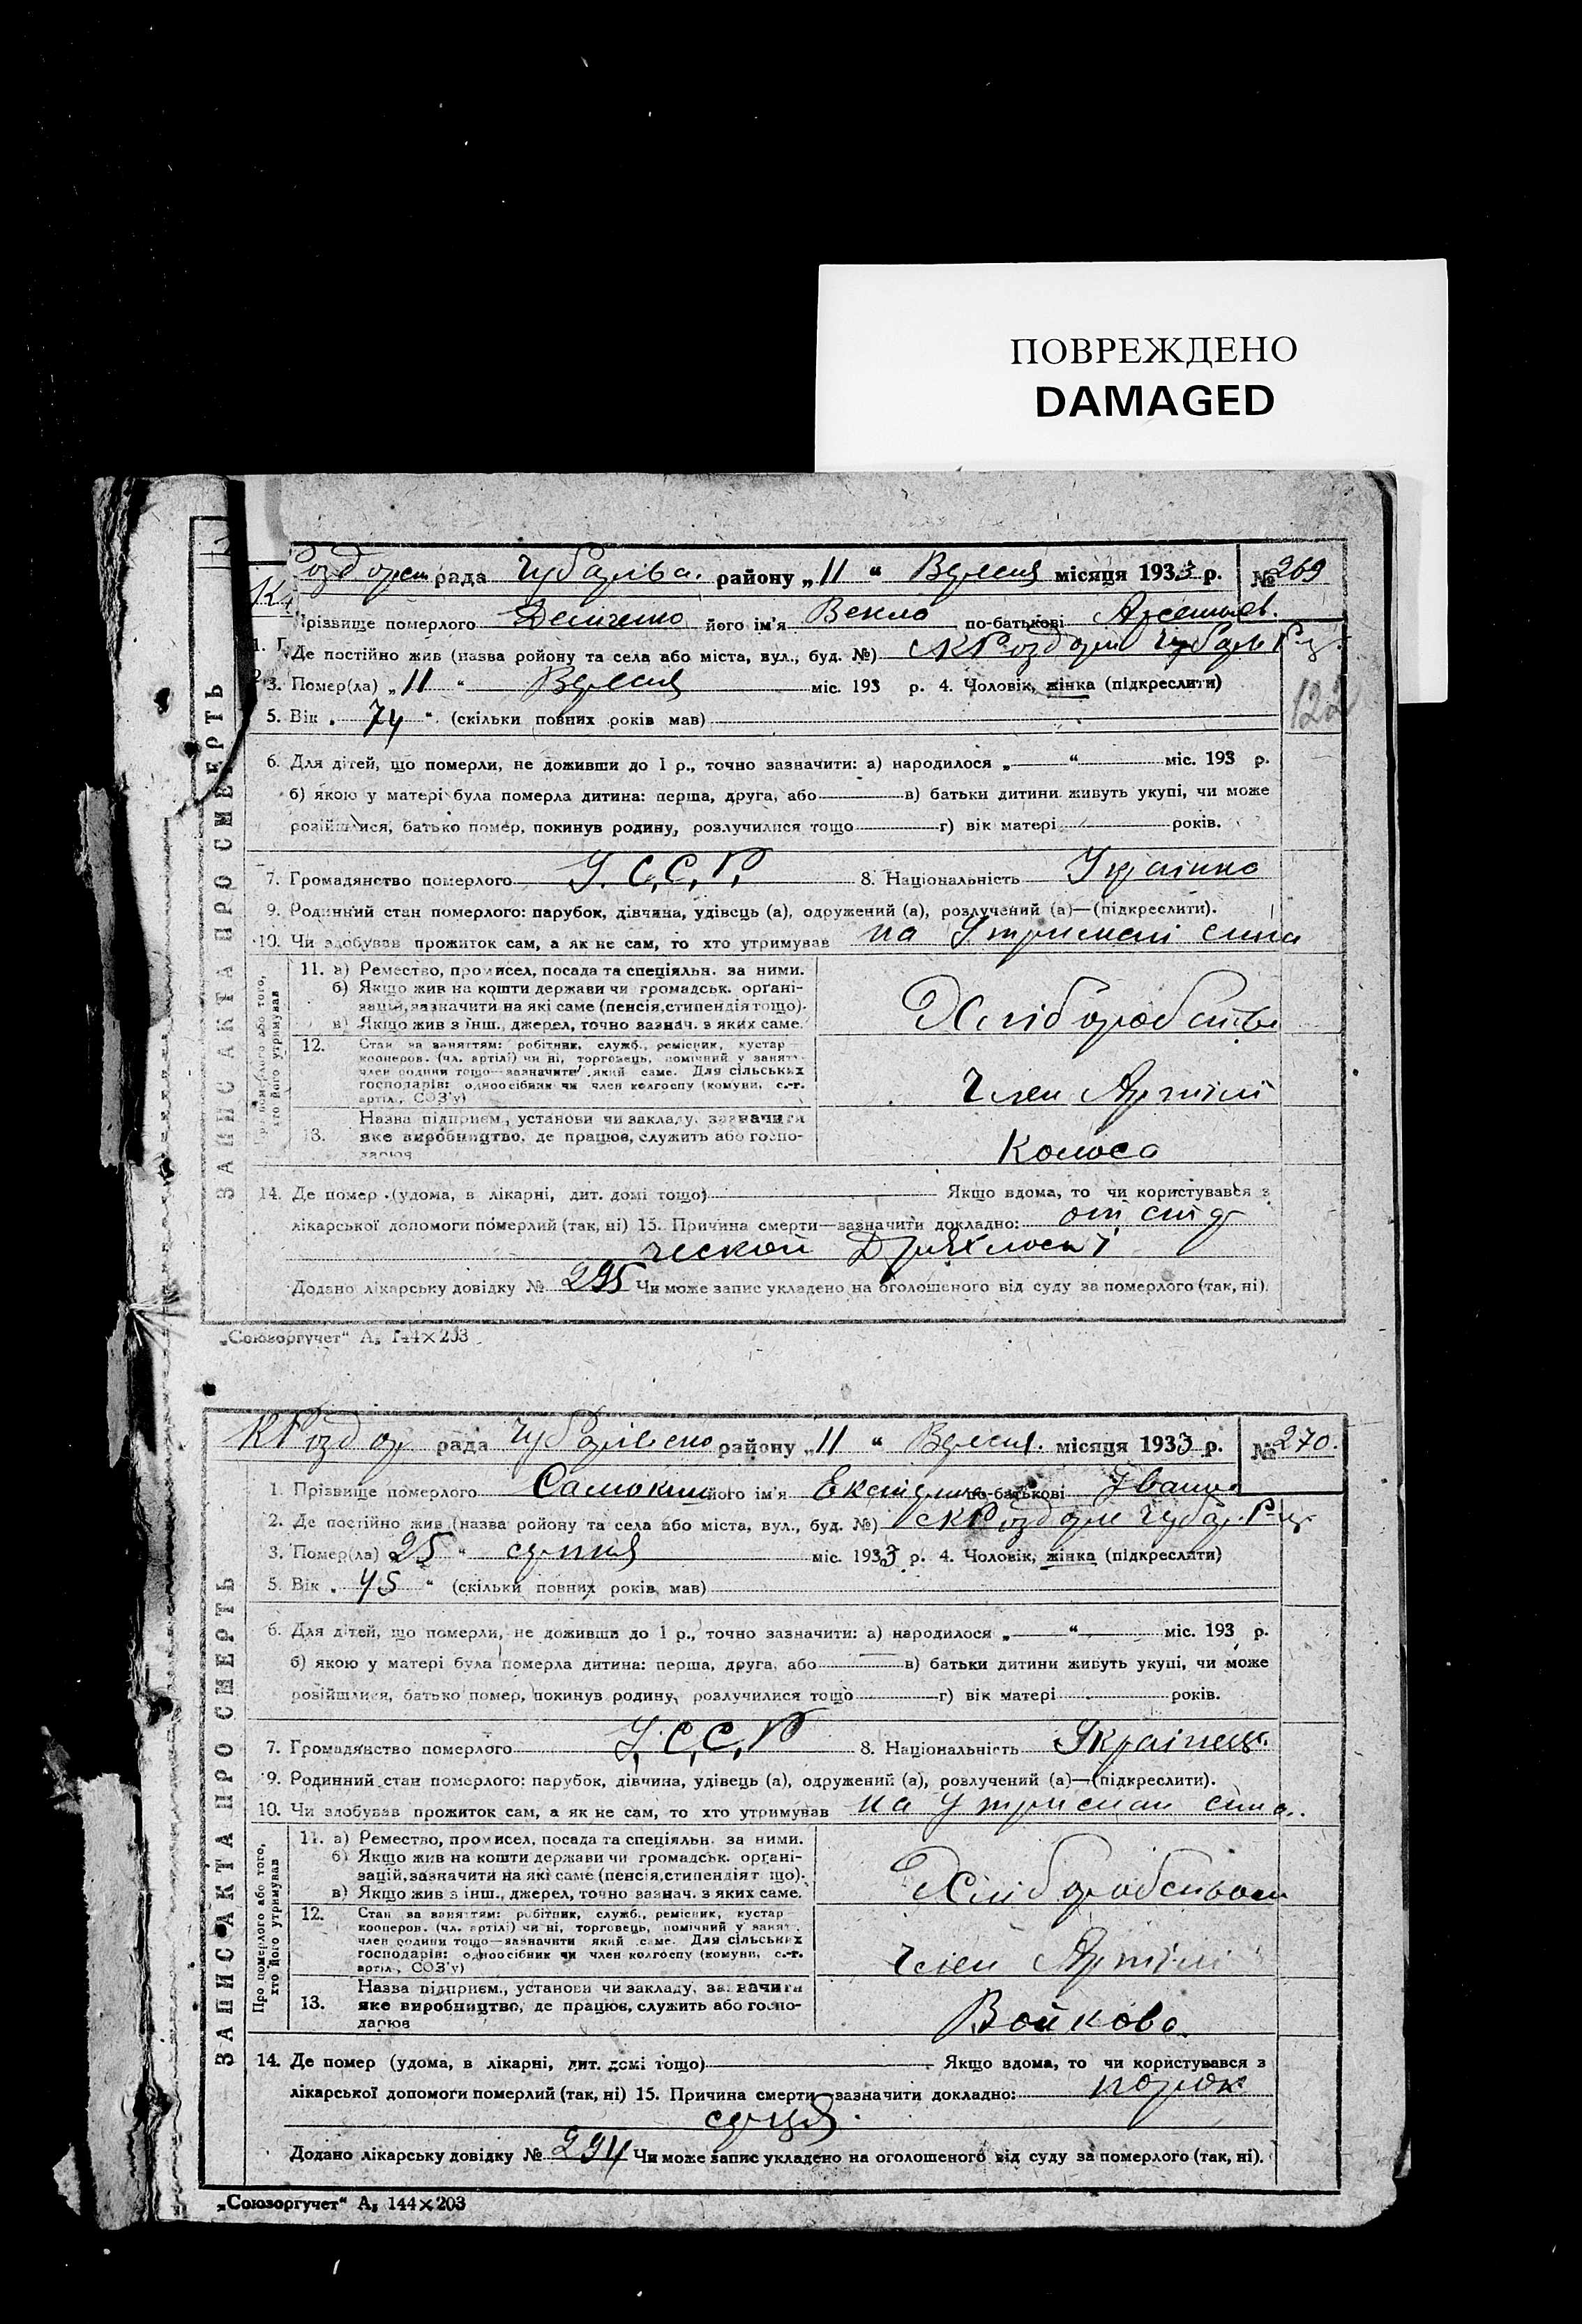 ПОВРЕЖДЕНО
DAMAGED
рада Чубарівс. району „11“ Вересня місяця 1933 р. № 269
Прізвище померлого Демченко його ім'я Векла по-батькові
Де постійно жив (назва ройону та села або міста, вул., буд. №)
3. Помер(ла) „11“ Вересня міс. 193 р. 4. Чоловік, жінка (підкреслити)
122
5. Вік „74“ (скільки повних років мав)
6. Для дітей, що померли, не доживши до 1 р., точно зазначити: а) народилося „ “ міс. 193 р.
б) якою у матері була померла дитина: перша, друга, або в) батьки дитини живуть укупі, чи може
розійшлися, батько помер, покинув родину, розлучилися тощо г) вік матері років.
7. Громадянство померлого У.С.С.Р. 8. Національність Українка
9. Родинний стан померлого: парубок, дівчина, удівець (а), одружений (а), розлучений (а)—(підкреслити).
10. Чи здобував прожиток сам, а як не сам, то хто утримував на Утримані сина
ЗАПИС АКТА ПРО СМЕРТЬ
11. а) Ремество, промисел, посада та спеціяльн. за ними.
б) Якщо жив на кошти держави чи громадськ. органі-
зацій, зазначити на які саме (пенсія, стипендія тощо).
в) Якщо жив з інш., джерел, точно зазнач. з яких саме.
Хліборобство
12. Стан за заняттям: робітник, служб., ремісник, кустар
кооперов. (чл. артілі) чи ні, торговець, помічний у занятт.
член родини тощо—зазначити який саме. Для сільських
господарів: одноосібник чи член колгоспу (комуни, с.-г.
артіл., СОЗ'у)
Член Артілі
13. Назва підприєм., установи чи закладу, зазначити
яке виробництво, де працює, служить або госпо-
дарює
Колоса
14. Де помер (удома, в лікарні, дит. домі тощо) Якщо вдома, то чи користувався з
лікарської допомоги померлий (так, ні) 15. Причина смерти—зазначити докладно: от
ческой Дряхлості
Додано лікарську довідку № 295 Чи може запис укладено на оголошеного від суду за померлого (так, ні).
„Союзоргучет“ А₅ 144×203
рада району „11“ Вересня. місяця 1933 р. № 270.
1. Прізвище померлого Самокиш його ім'я по-батькові Іванів
2. Де постійно жив (назва ройону та села або міста, вул., буд. №)
3. Помер(ла) 25 “ серпня міс. 1933 р. 4. Чоловік, жінка (підкреслити)
5. Вік „45“ (скільки повних років мав)
6. Для дітей, що померли, не доживши до 1 р., точно зазначити: а) народилося „ “ міс. 193 р.
б) якою у матері була померла дитина: перша, друга, або в) батьки дитини живуть укупі, чи може
розійшлися, батько помер, покинув родину, розлучилися тощо г) вік матері років.
7. Громадянство померлого У.С.С.Р 8. Національність Українец.
9. Родинний стан померлого: парубок, дівчина, удівець (а), одружений (а), розлучений (а)—(підкреслити).
10. Чи здобував прожиток сам, а як не сам, то хто утримував на Утриман сина.
ЗАПИС АКТА ПРО СМЕРТЬ
Про померлого або того,
хто його утримував
11. а) Ремество, промисел, посада та спеціяльн. за ними.
б) Якщо жив на кошти держави чи громадськ. органі-
зацій, зазначити на які саме (пенсія, стипендія тощо).
в) Якщо жив з інш., джерел, точно зазнач. з яких саме.
Хліборобством
12. Стан за заняттям: робітник, служб., ремісник, кустар
кооперов. (чл. артілі) чи ні, торговець, помічний у занят.
член родини тощо—зазначити який саме. Для сільських
господарів: одноосібник чи член колгоспу (комуни, с.-г.
артіл., СОЗ'у)
Член Артілі
13. Назва підприєм., установи чи закладу, зазначити
яке виробництво, де працює, служить або госпо-
дарює
Войкова.
14. Де помер (удома, в лікарні, дит. домі тощо) Якщо вдома, то чи користувався з
лікарської допомоги померлий (так, ні) 15. Причина смерти—зазначити докладно: порок
серця.
Додано лікарську довідку № 294 Чи може запис укладено на оголошеного від суду за померлого (так, ні).
„Союзоргучет“ А₅ 144×203